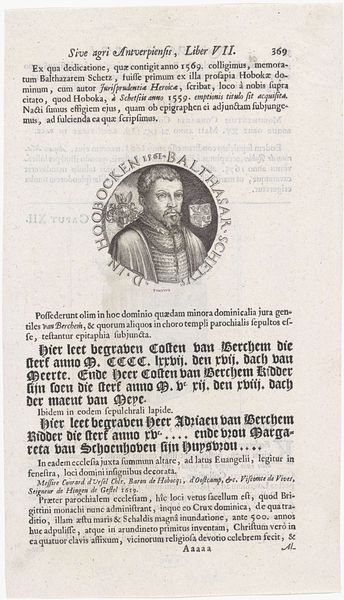 Sive agri Antverpiensis, Liber VII. 369
Ex qua dedicatione, quæ contigit anno 1569. colligimus, memora-
tum Balthazarem Schetz, fuisse primum ex illa prosapia Hobokæ do-
minum, cum autor Jurisprudentiæ Heroicæ, scribat, loco à nobis supra
citato, quod Hoboka, à Schetsiis anno 1559. emptionis titulo sit acquisita.
Nacti sumus effigiem ejus, quam ob epigraphen ei adjunctam subjunge-
mus, ad fulcienda ea quæ scripsimus.
D. IN HOOBOCKEN 1561 BALTHASAR SCHETZ
Possederunt olim in hoc dominio quædam minora dominicalia jura gen-
tiles van Berchem, & quorum aliquos in choro templi parochialis sepultos es-
se, testantur epitaphia subjuncta.
Hier leet begraven Costen van Berchem die
sterf anno M. CCCC. lxxvij. den xvij. dach van
Meerte. Ende Heer Costen van Berchem Ridder
sijn soen die sterf anno M. vᶜ xij. den xviij. dach
der maent van Meye.
Ibidem in eodem sepulchrali lapide.
Hier leet begraven Heer Adriaen van Berchem
Ridder die sterf anno xvᶜ .... ende vrou Marga-
reta van Schoenhoven sijn Huysvrou ....
In eadem ecclesia juxta summum altare, ad latus Euangelii, legitur in
fenestra, loci domini insignibus decorata.
Messire Conrard d'Ursel Chlr. Baron de Hobocq;, d'Oostcamp, &c. Viscomte de Vive,
Seigneur de Hingen de Gestel 1619.
Præter parochialem ecclesiam, hîc loci vetus sacellum est, quod Bri-
gittini monachi nunc administrant, inque eo Crux dominica, de qua tra-
ditio, illam æstu maris & Schaldis magnâ inundatione, ante 500. annos
huc adpulisse, atque in arundineto primitus inventam, Christum verò in
ea quatuor clavis affixum, vicinorum religiosa devotio celebrem fecit, &
Aaaaa Al-